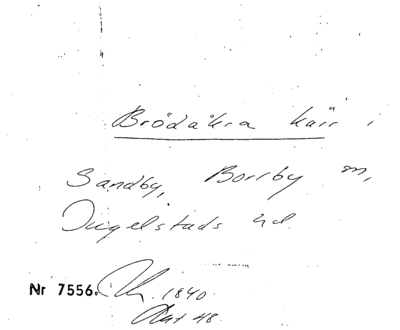 Brödåkra kärr i
Sandby, Borrby sn,
Ingelstads hd.
Nr 7556. 1840.
Akt 48.